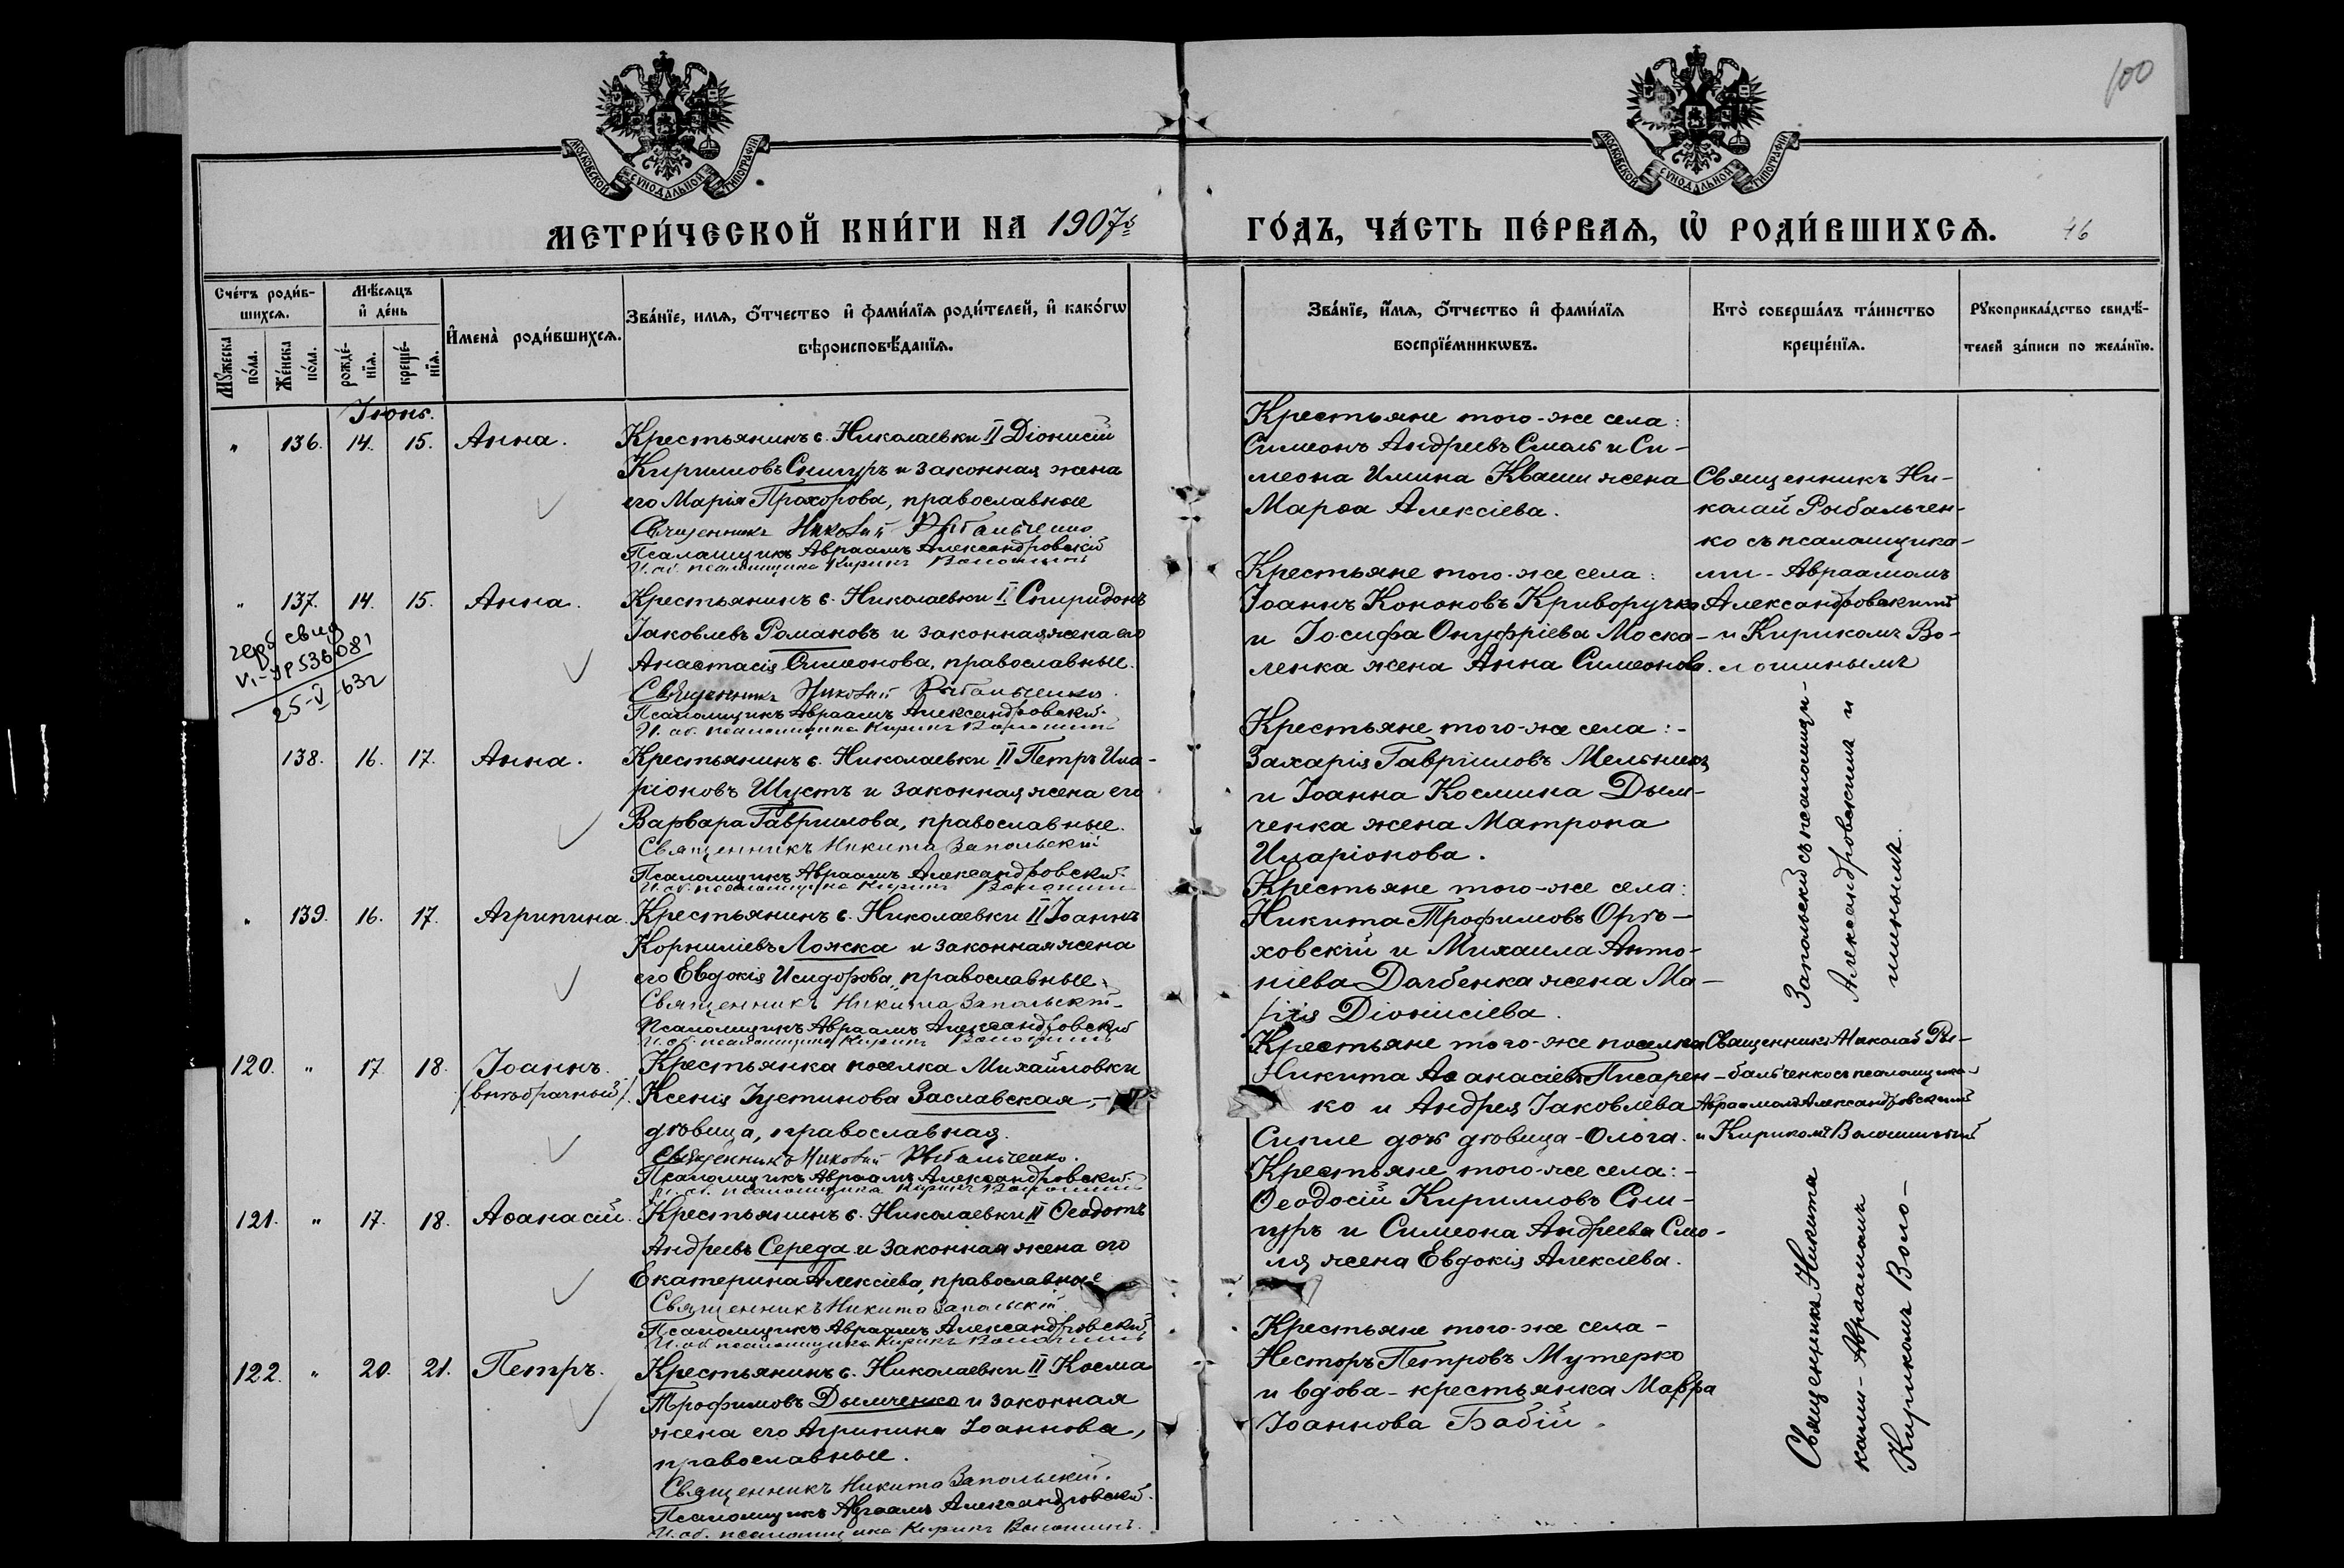 100
МОСКОВСКОЙ СѴНОДАЛЬНОЙ ТИПОГРАФІИ
МОСКОВСКОЙ СѴНОДАЛЬНОЙ ТИПОГРАФІИ
МЕТРИ́ЧЕСКОЙ КНИ́ГИ НА 1907й
ГО́ДЪ, ЧА́СТЬ ПЕ́РВАѦ, Ѡ҆ РОДИ́ВШИХСѦ. 46
Сче́тъ роди́в-
шихсѧ.
Мѣ́сѧцъ
и҆ де́нь
Мꙋ́жеска
по́ла.
Же́нска
по́ла.
рожде́-
нїѧ.
креще́-
нїѧ.
И҆мена̀ роди́вшихсѧ.
Зва́нїе, имѧ, ѻ҆́тчество и҆ фами́лїѧ роди́телей, и҆ како́гѡ
вѣроисповѣ́данїѧ.
Зва́нїе, и҆́мѧ, ѻ҆́тчество и҆ фами́лїѧ
воспрїе́мникѡвъ.
Кто̀ соверша́лъ та́инство
креще́нїѧ.
Рꙋкоприкла́дство свидѣ́-
телей за́писи по жела́нїю.
Іюнь.
" 136. 14. 15. Анна.
Крестьянинъ с. Николаевки II Діонисій
Кирилловъ Снигуръ и законная жена
его Марія Прохорова, православные
Священникъ Николай Рыбальченко
Псаломщикъ Авраамъ Александровскій
И. об. псаломщика Кирикъ Волошинъ
Крестьяне того-же села:
Симеонъ Андреевъ Смаль и Си-
меона Илиина Кваши жена
Марѳа Алексіева.
Священникъ Ни-
колай Рыбальчен-
ко съ псаломщика-
ми - Авраамомъ
Александровскимъ
и Кирикомъ Во-
лошинымъ
" 137. 14. 15. Анна.
герб свид
VI-УР 536081
25-V 63г
Крестьянинъ с. Николаевки I Спиридонъ
Іаковлевъ Романовъ и законная жена его
Анастасія Симеонова, православные.
Священникъ Николай Рыбальченко.
Псаломщикъ Авраамъ Александровскій.
И. об. псаломщика Кирикъ Волошинъ
Крестьяне того-же села:
Іоаннъ Кононовъ Криворучко
и Іосифа Онуфріева Моска-
ленка жена Анна Симеонова.
138. 16. 17. Анна.
Крестьянинъ с. Николаевки II Петръ Ила-
ріоновъ Шустъ и законная жена его
Варвара Гавриилова, православные.
Священникъ Никита Запольскій
Псаломщикъ Авраамъ Александровскій.
И. об. псаломщика Кирикъ Волошинъ
Крестьяне того-же села:-
Захарія Гавріиловъ Мельникъ
и Іоанна Космина Дым-
ченка жена Матрона
Иларіонова.
" 139. 16. 17. Агрипина.
Крестьянинъ с. Николаевки II Іоаннъ
Корниліевъ Ложка и законная жена
его Евдокія Исидорова, православные.
Священникъ Никита Запольскій
Псаломщикъ Авраамъ Александровскій
И. об. псаломщика Кирикъ Волошинъ
Крестьяне того-же села:
Никита Трофимовъ Орѣ-
ховскій и Михаила Анто-
ніева Долбенка жена Ма-
рія Діонисіева.
120. " 17. 18. Іоаннъ.
(внѣбрачный).
Крестьянка поселка Михайловки
Ксенія Іустинова Заславская,-
дѣвица, православная.
Священникъ Николай Рыбальченко.
Псаломщикъ Авраамъ Александровскій.
И. об. псаломщика Кирикъ Волошинъ
Крестьяне того-же поселка
Никита Аѳанасіевъ Писарен-
ко и Андрея Іаковлева
дочь дѣвица-Ольга.
Священникъ Николай Ры-
бальченко съ псаломщика-
Авраамомъ Александровскимъ
и Кирикомъ Волошинымъ
121. " 17. 18. Аѳанасій.
Крестьянинъ с. Николаевки II Ѳеодотъ
Андреевъ Середа и законная жена его
Екатерина Алексіева, православные
Священникъ Никита Запольскій.
Псаломщикъ Авраамъ Александровскій
И. об. псаломщика Кирикъ Волошинъ
Крестьяне того-же села:-
Ѳеодосій Кирилловъ Сни-
гуръ и Симеона Андреева Смо-
ля жена Евдокія Алексіева.
122. " 20. 21. Петръ.
Крестьянинъ с. Николаевки II Косма
Трофимовъ Дымченко и законная
жена его Агрипина Іоаннова,
православные.
Священникъ Никита Запольскій.
Псаломщикъ Авраамъ Александровскій.
И. об. псаломщика Кирикъ Волошинъ.
Крестьяне того-же села-
Несторъ Петровъ Мутерко
и вдова-крестьянка Мавра
Іоаннова Бабій.
Священникъ Никита Запольскій съ псаломщи-
ками - Авраамомъ Александровскимъ и
Кирикомъ Воло-шинымъ.